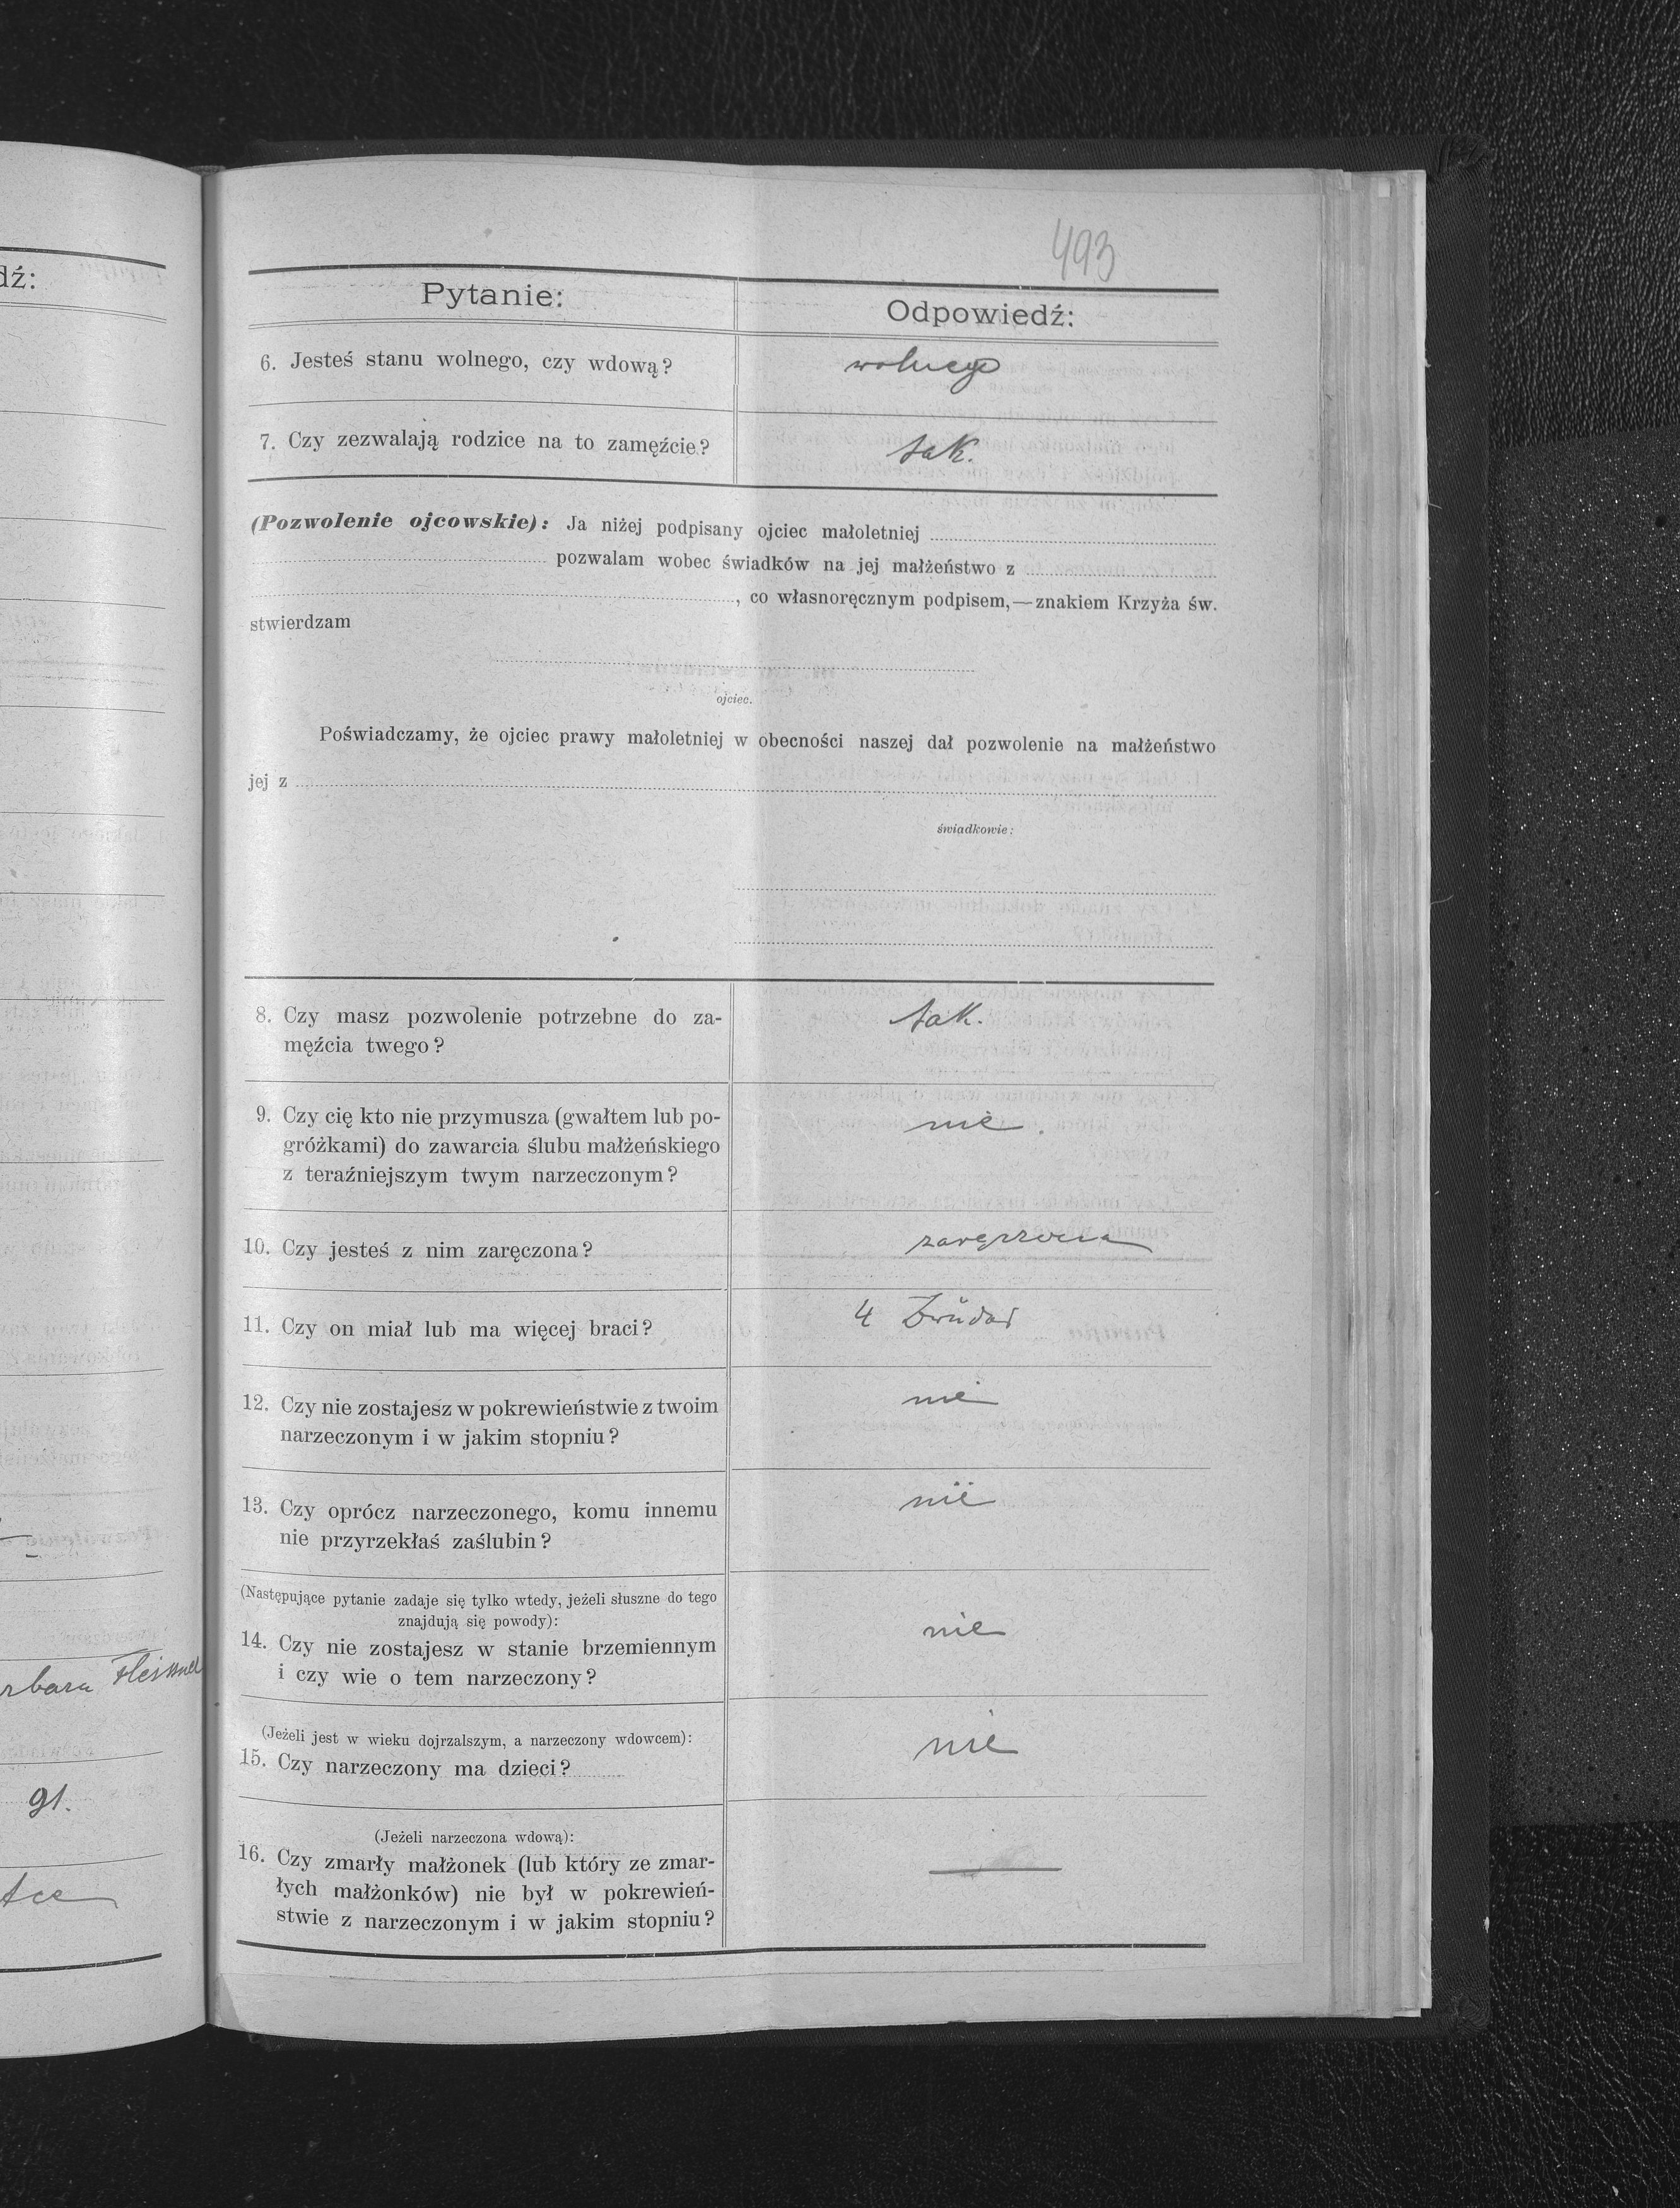 dź:
rbara Fleissner
91.
tce
493
Pytanie:
Odpowiedź:
6. Jesteś stanu wolnego, czy wdową?
wolnego
7. Czy zezwalają rodzice na to zamęźcie?
tak.
(Pozwolenie ojcowskie): Ja niżej podpisany ojciec małoletniej
pozwalam wobec świadków na jej małżeństwo z
, co własnoręcznym podpisem,—znakiem Krzyża św.
stwierdzam
ojciec.
Poświadczamy, że ojciec prawy małoletniej w obecności naszej dał pozwolenie na małżeństwo
jej z
świadkowie:
8. Czy masz pozwolenie potrzebne do za-
męźcia twego?
tak.
9. Czy cię kto nie przymusza (gwałtem lub po-
gróżkami) do zawarcia ślubu małżeńskiego
z teraźniejszym twym narzeczonym?
nie.
10. Czy jesteś z nim zaręczona?
zaręczona
11. Czy on miał lub ma więcej braci?
4 Brüder
12. Czy nie zostajesz w pokrewieństwie z twoim
narzeczonym i w jakim stopniu?
nie
13. Czy oprócz narzeczonego, komu innemu
nie przyrzekłaś zaślubin?
nie
(Następujące pytanie zadaje się tylko wtedy, jeżeli słuszne do tego
znajdują się powody):
14. Czy nie zostajesz w stanie brzemiennym
i czy wie o tem narzeczony?
nie
(Jeżeli jest w wieku dojrzalszym, a narzeczony wdowcem):
15. Czy narzeczony ma dzieci?
nie
(Jeżeli narzeczona wdową):
16. Czy zmarły małżonek (lub który ze zmar-
łych małżonków) nie był w pokrewień-
stwie z narzeczonym i w jakim stopniu?